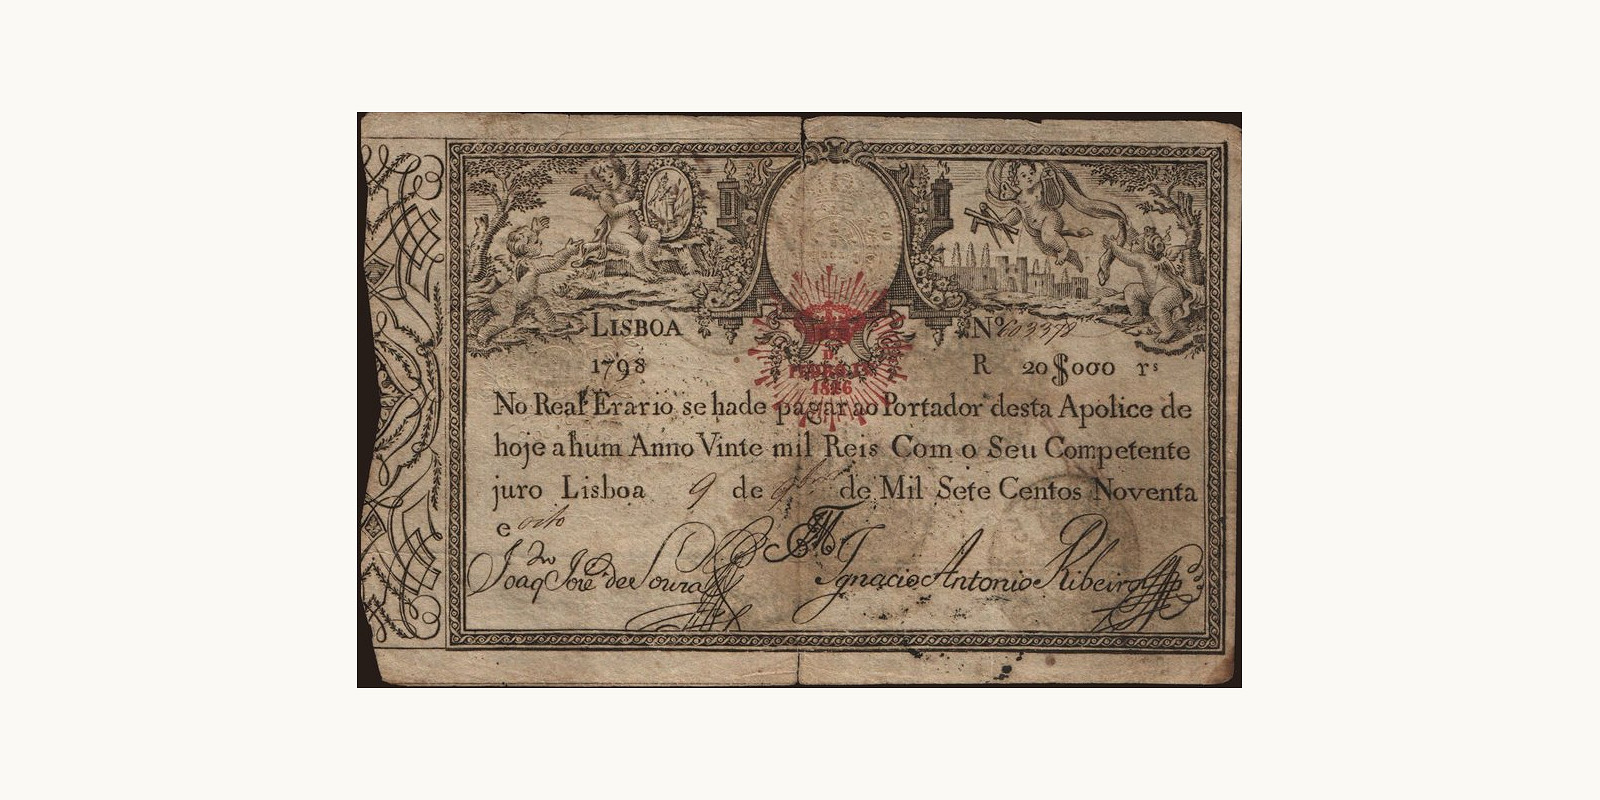 LISBOA Nº 603378
1798 R 20$000 rˢ
D.
PEDRO IV
1826
No Real Erario se hade pagar ao Portador desta Apolice de
hoje a hum Anno Vinte mil Reis Com o Seu Competente
juro Lisboa 9 de de Mil Sete Centos Noventa
e oito
Joaq José de Souza Ignacio Antonio Ribeiro